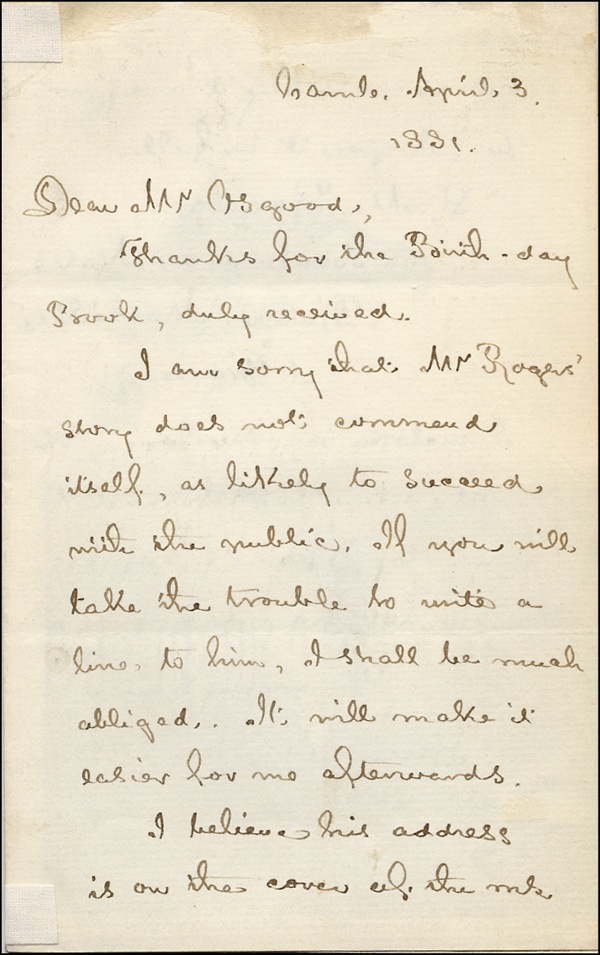 Camb. April 3.
1881.
Dear Mr Osgood,
Thanks for the Birth-day
Book, duly received.
I am sorry that Mr Rogers'
story does not commend
itself, as likely to succeed
with the public. If you will
take the trouble to write a
line to him, I shall be much
obliged. It will make it
easier for me afterwards.
I believe his address
is on the cover of the ms